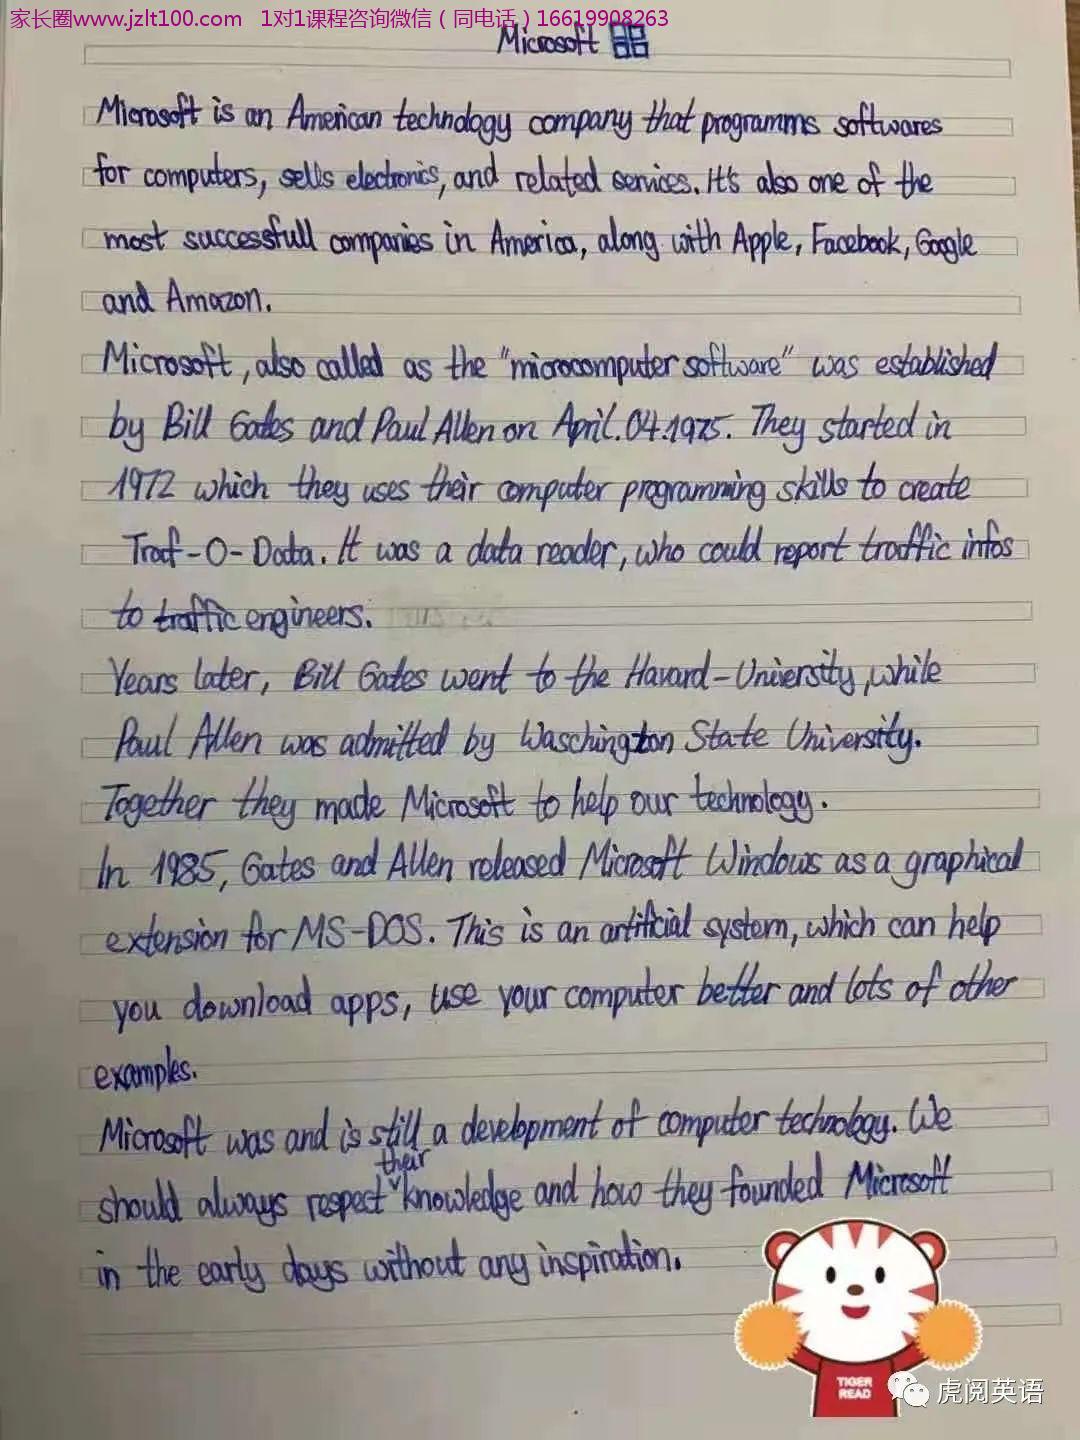 家长圈www.jzlt100.com 1对1课程咨询微信（同电话）16619908263
Microsoft
Microsoft is an American technology company that programms softwares
for computers, sells electronics, and related services. It's also one of the
most successfull companies in America, along with Apple, Facebook, Google
and Amazon.
Microsoft, also called as the "microcomputer software" was established
by Bill Gates and Paul Allen on April.04.1975. They started in
1972 which they uses their computer programming skills to create
Traf-O-Data. It was a data reader, who could report traffic infos
to traffic engineers.
Years later, Bill Gates went to the Havard-University, while
Paul Allen was admitted by Waschington State University.
Together they made Microsoft to help our technology.
In 1985, Gates and Allen released Microsoft Windows as a graphical
extension for MS-DOS. This is an artificial system, which can help
you download apps, use your computer better and lots of other
examples.
Microsoft was and is still a development of computer technology. We
should always respect their knowledge and how they founded Microsoft
in the early days without any inspiration.
TIGER
READ
虎阅英语